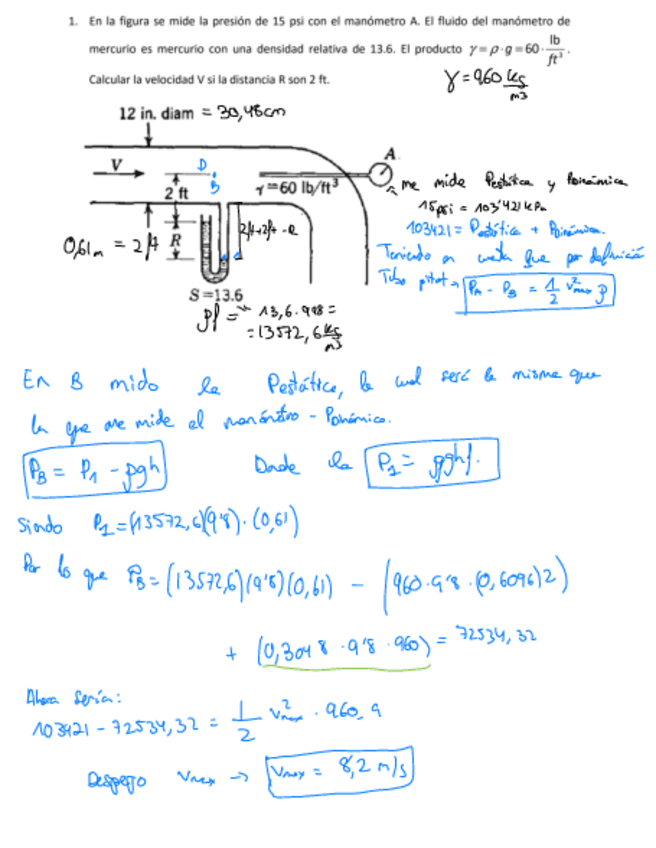 1. En la figura se mide la presión de 15 psi con el manómetro A. El fluido del manómetro de
mercurio es mercurio con una densidad relativa de 13.6. El producto γ = ρ · g = 60 · lb/ft³.
Calcular la velocidad V si la distancia R son 2 ft.
γ = 960 kg/m3
12 in. diam = 30,48cm
V
D
B
2 ft
γ = 60 lb/ft³
A
me mide Pestática y Pdinámica
15psi = 103'421 kPa
103421 = Pestática + Pdinámica.
Teniendo en cuenta que por definición
Tubo pitot → PA - PB = 1/2 v²max ρ
0,61m = 2ft
R
2ft+2ft-R
S = 13.6
ρf = 13,6 · 998 =
= 13572,6 kg/m3
En B mido la Pestática, la cual será la misma que
la que me mide el manómetro - Pdinámica.
PB = P1 - ρgh
Donde la P1 = ρghf.
Siendo P1 = (13572,6)(9'8) · (0,61)
Por lo que PB = (13572,6)(9'8)(0,61) - (960 · 9'8 · (0,6096)2)
+ (0,3048 · 9'8 · 960) = 72534,32
Ahora sería:
103421 - 72534,32 = 1/2 v²max · 960,9
Despejo vmax → vmax = 8,2 m/s